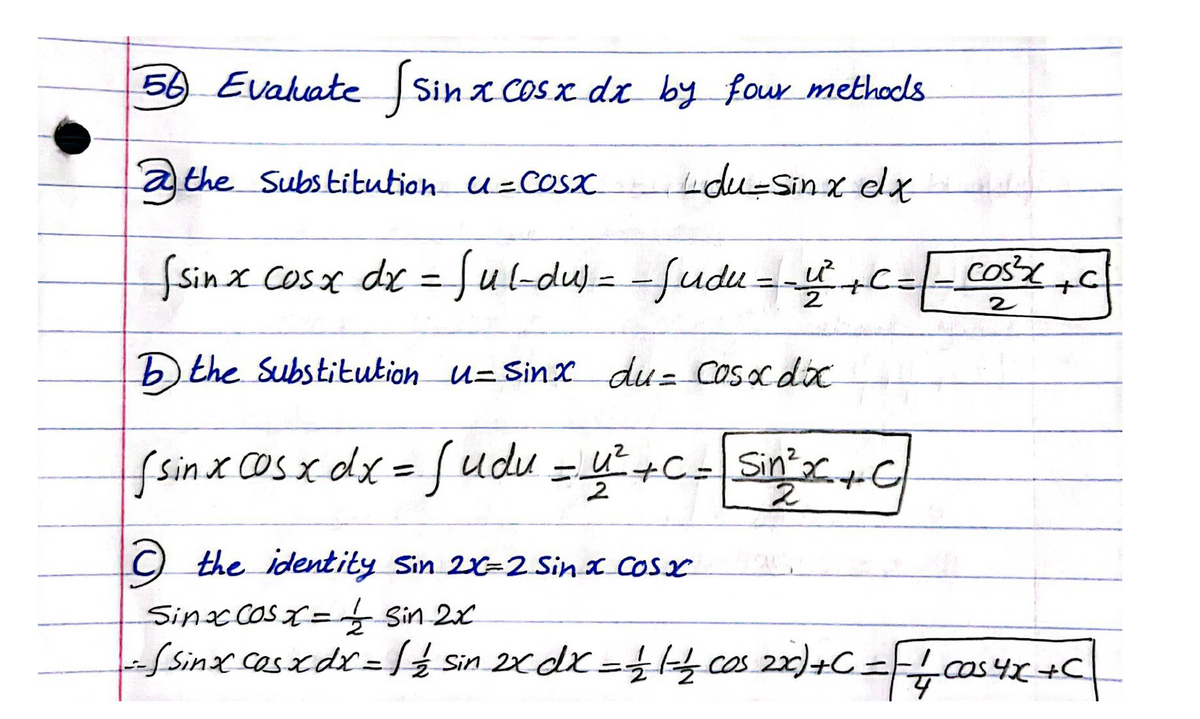 56) Evaluate ∫sin x cos x dx by four methods
a) the Substitution u = cosx -du = sin x dx
∫sin x cos x dx = ∫u(-du) = -∫u du = -u²/2 + C = -cos²x/2 + C
b) the Substitution u = sin x du = cos x dx
∫sin x cos x dx = ∫u du = u²/2 + C = Sin²x/2 + C
c) the identity sin 2x = 2 sin x cos x
Sin x cos x = 1/2 sin 2x
∴ ∫sin x cos x dx = ∫1/2 sin 2x dx = 1/2(-1/2 cos 2x) + C = -1/4 cos 4x + C